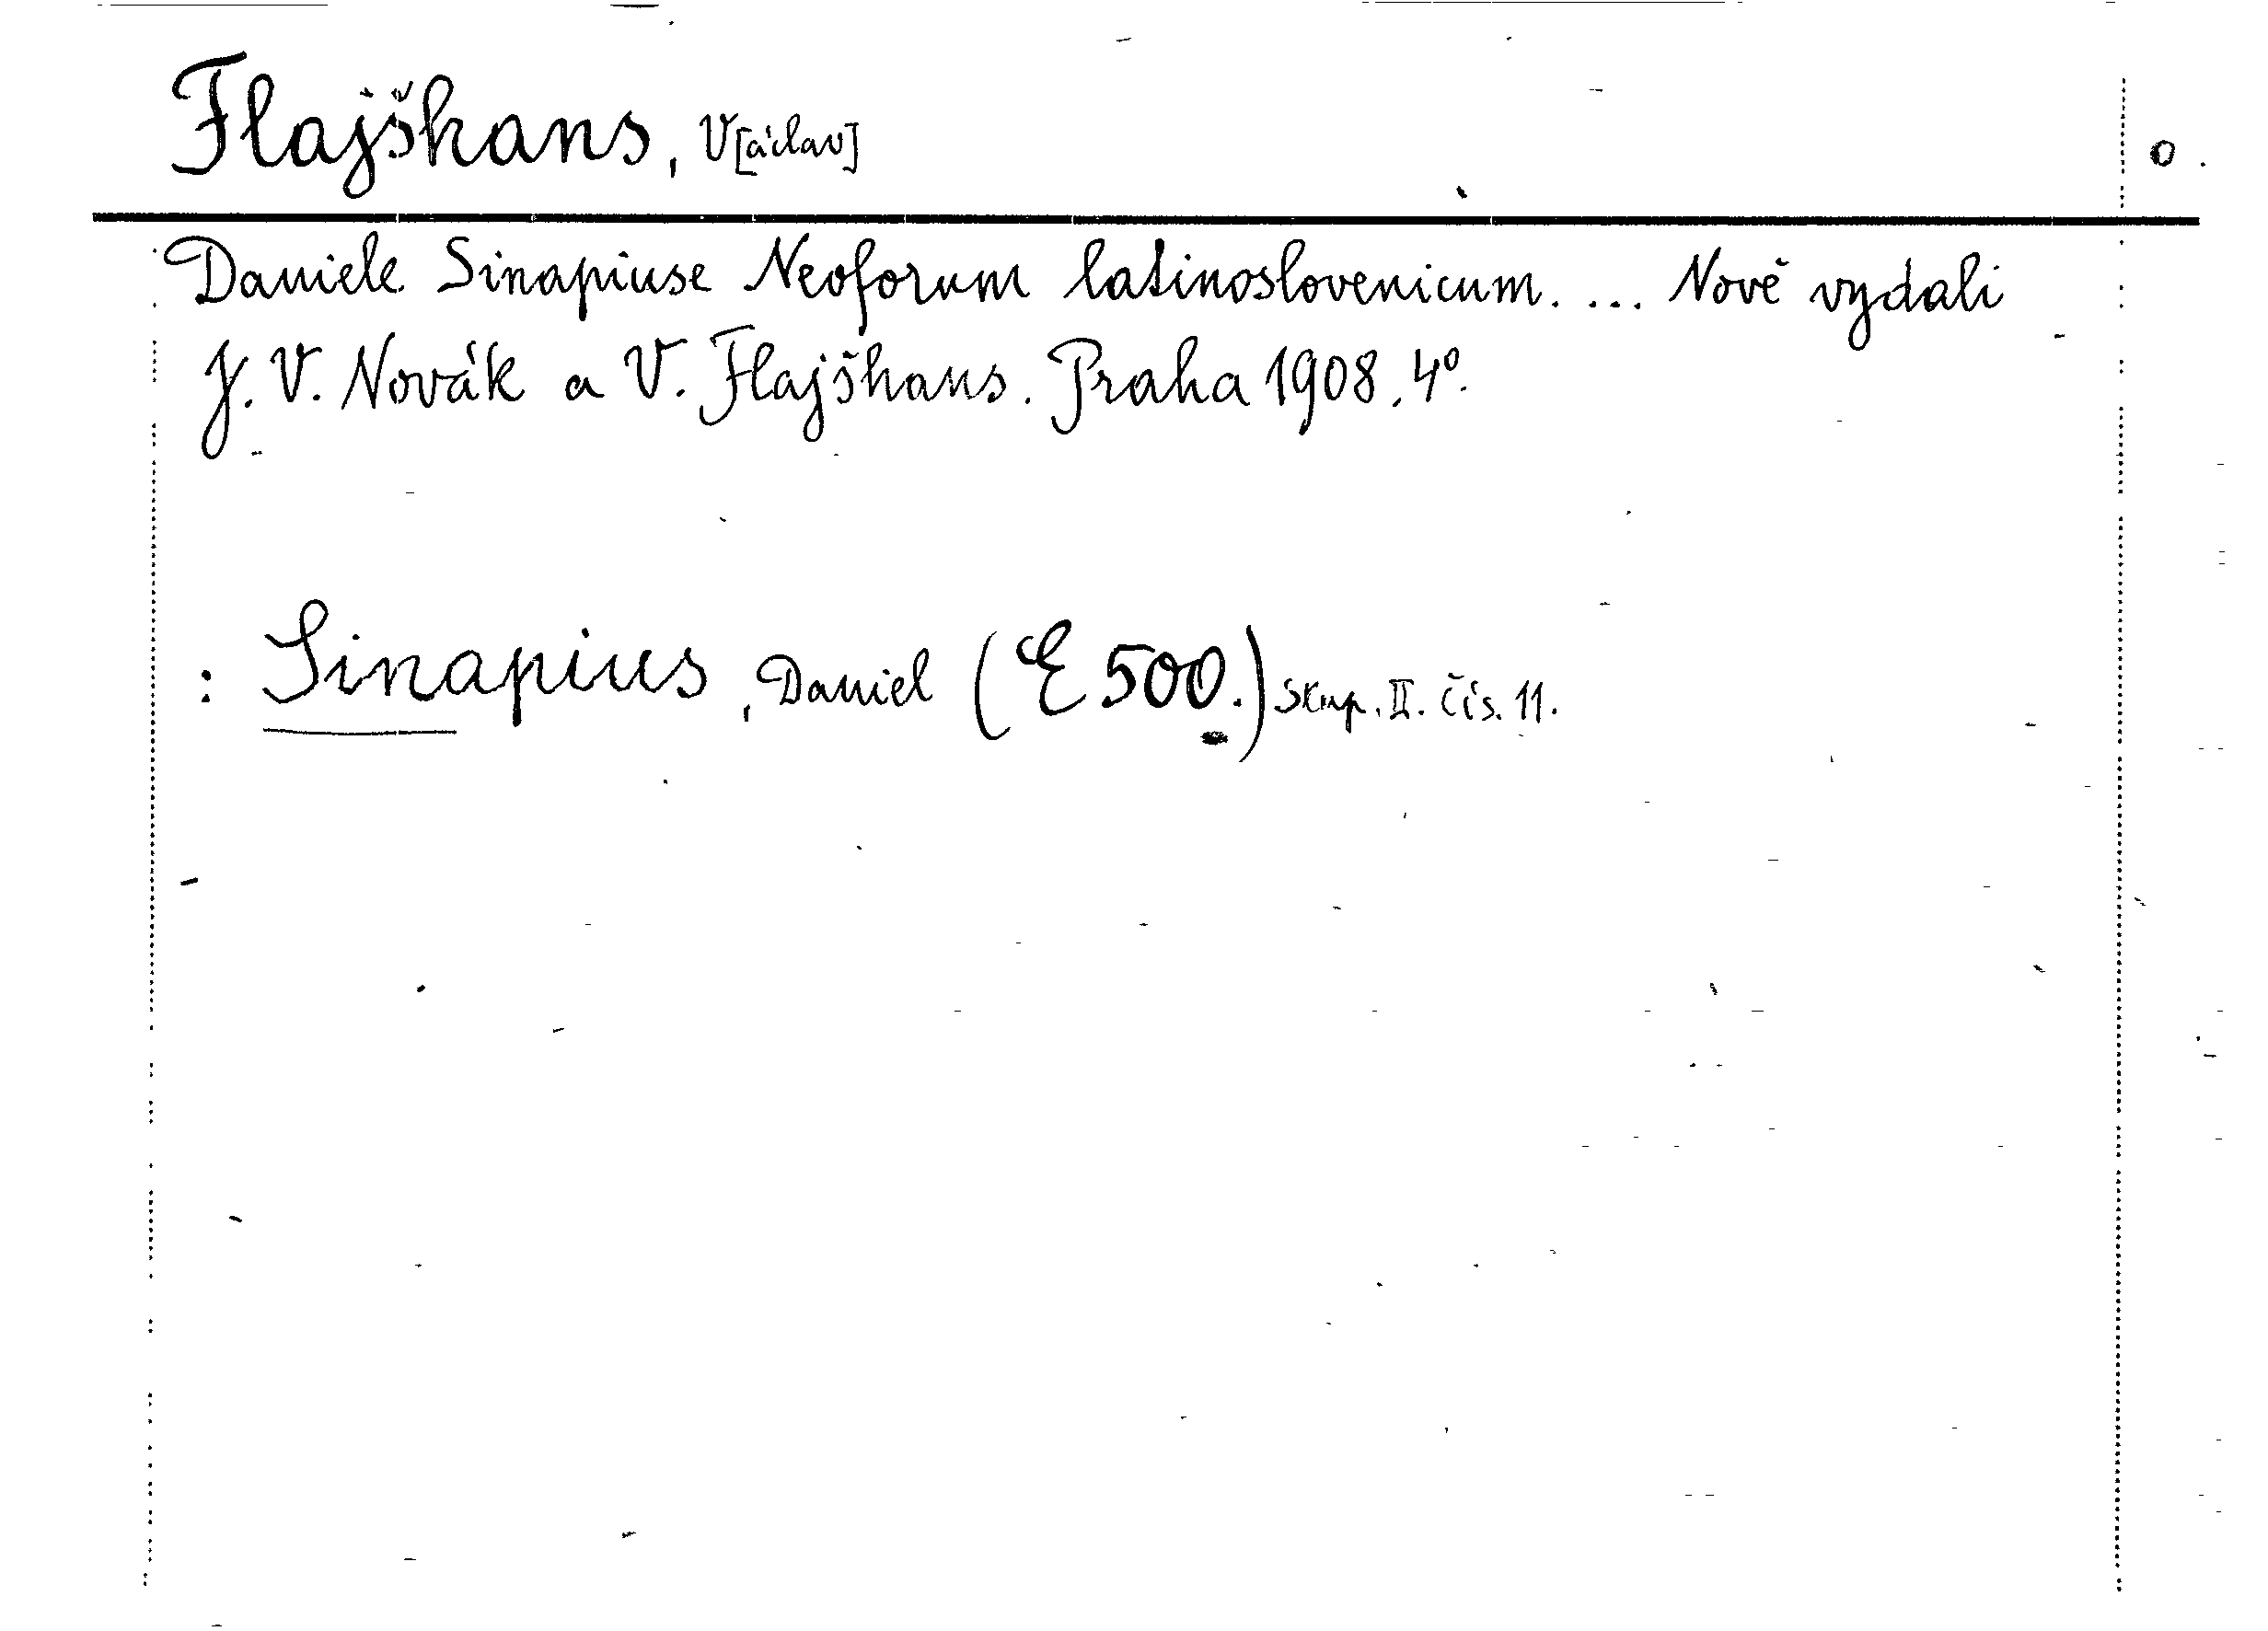 Flajšhans, V[áclav] o
Daniele Sinapiuse Neoforum latinoslovenicum. ... Nově vydali
J. V. Novák a V. Flajšhans. Praha 1908. 4°.
: Sinapius, Daniel (E 500.) Skup. II. čís. 11.